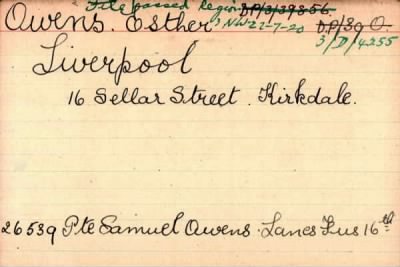 File passed Region D.P/3/39856
Owens. Esther 3 NW 22-7-20 D.P/39 O.
3/D/4255
Liverpool
16 Sellar Street. Kirkdale.
26539 Pte Samuel Owens. Lancs Fus 16th